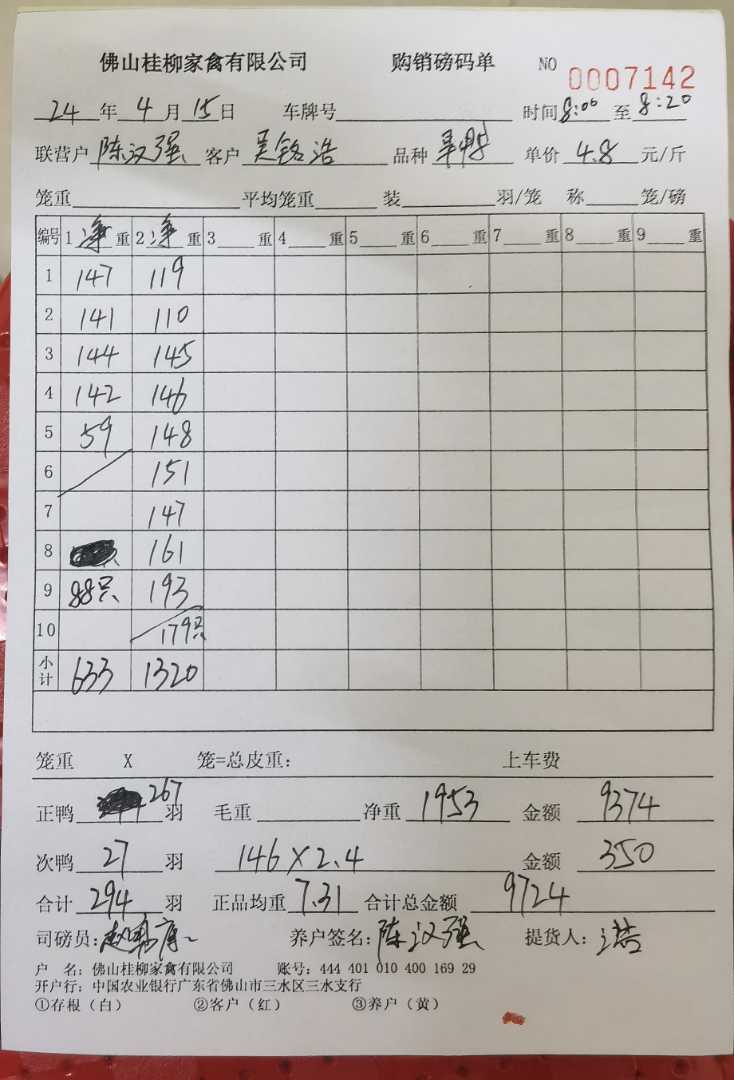 佛山桂柳家禽有限公司 购销磅码单 NO 0007142
24年4月15日 车牌号 时间8:00至8:20
联营户 陈汉强 客户 吴铭浩 品种 旱鸭 单价 4.8 元/斤
笼重 平均笼重 装 羽/笼 称 笼/磅
编号 1净重 2净重 3重 4重 5重 6重 7重 8重 9重
1 147 119
2 141 110
3 144 145
4 142 146
5 59 148
6 151
7 147
8 161
9 88只 193
10 179只
小计 633 1320
笼重 X 笼=总皮重: 上车费
正鸭 267 羽 毛重 净重 1953 金额 9374
次鸭 27 羽 146×2.4 金额 350
合计 294 羽 正品均重 7.31 合计总金额 9724
司磅员: 养户签名: 陈汉强 提货人: 浩
户 名: 佛山桂柳家禽有限公司 账号: 444 401 010 400 169 29
开户行: 中国农业银行广东省佛山市三水区三水支行
①存根（白） ②客户（红） ③养户（黄）